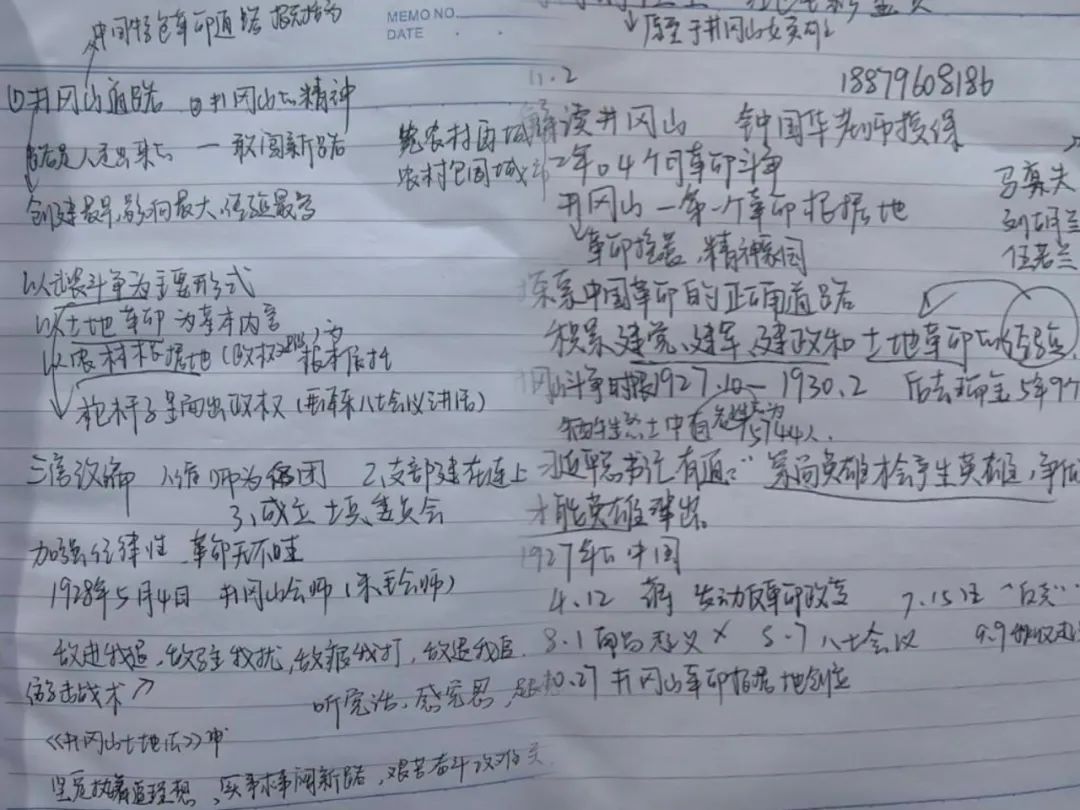 中国特色革命道路
MEMO NO.
DATE
①井冈山道路 ②井冈山的精神
路是人走出来的 一 敢闯新路
先农村再城
农村包围城市
创建最早,影响最大,经验最多
以武装斗争为主要形式
以土地革命为基本内容
以农村根据地(政权)为根本依托
枪杆子里面出政权(毛泽东八七会议讲话)
三湾改编 1、缩师为团 2、支部建在连上
3、成立士兵委员会
加强纪律性 革命无不胜
1928年5月4日 井冈山会师(朱毛会师)
敌进我退,敌驻我扰,敌疲我打,敌退我追
游击战术
听党话、感党恩,跟
《井冈山土地法》
坚定执着追理想,实事求是闯新路,艰苦奋斗攻难关
11.2
18879608186
解读井冈山 钟国华老师授课
2年零4个月革命斗争
井冈山一第一个革命根据地
革命摇篮,精神家园
刘胡兰
伍若兰
探索中国革命的正确道路
积累建党、建军、建政和土地革命的经验,
井冈山斗争时期1927.10-1930.2 后去瑞金5年9个
牺牲烈士中有名姓为15744人.
习近平总书记有道:"崇尚英雄才会产生英雄,争做
才能英雄辈出.
1927年的中国
4.12 蒋 发动反革命政变 7.15汪
8.1南昌起义 8.7八七会议 9.9秋收起
10.27井冈山革命根据地创立